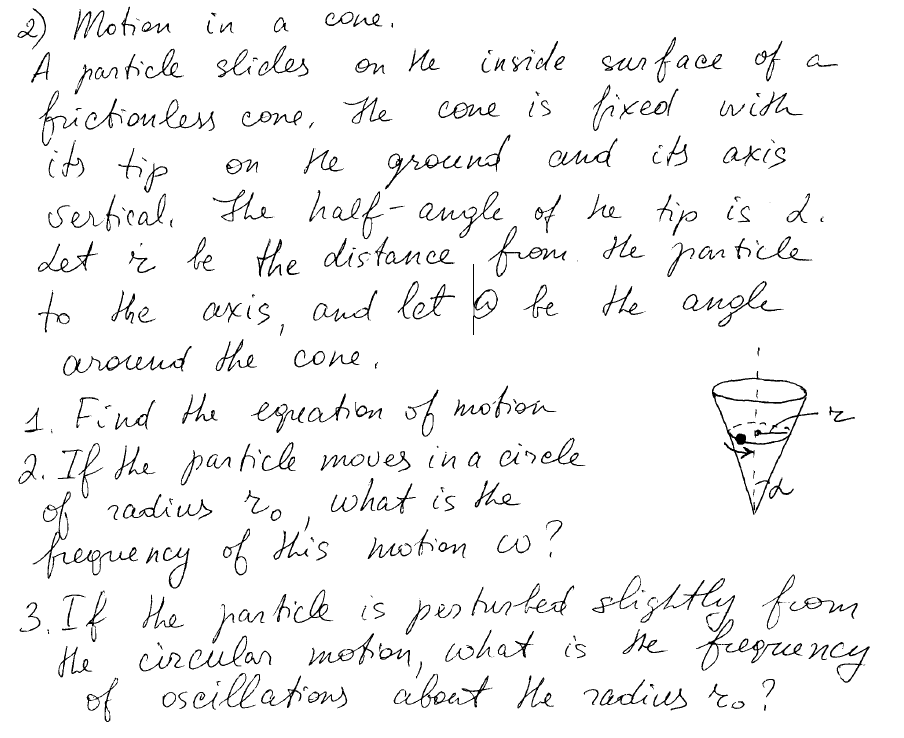 2) Motion in a cone.
A particle slides on the inside surface of a
frictionless cone. The cone is fixed with
its tip on the ground and its axis
vertical. The half-angle of the tip is α.
Let r be the distance from the particle
to the axis, and let Θ be the angle
around the cone.
1. Find the equation of motion
r
2. If the particle moves in a circle
α
of radius r₀, what is the
frequency of this motion ω?
3. If the particle is perturbed slightly from
the circular motion, what is the frequency
of oscillations about the radius r₀?